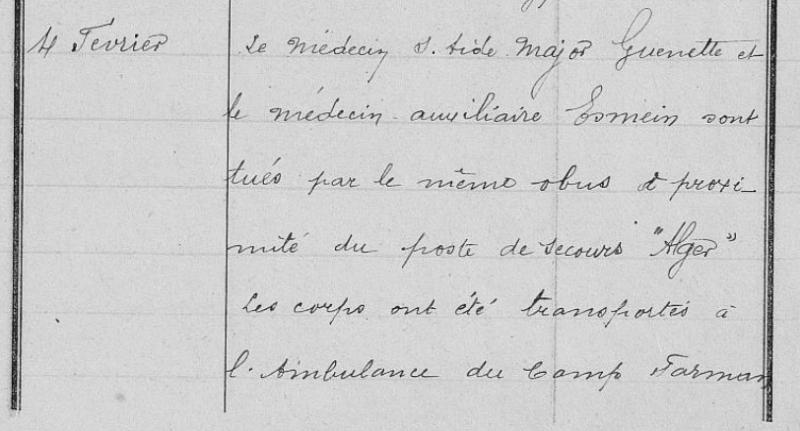 4 Février Le Médecin S. Aide Major Guenette et
le médecin auxiliaire Esmein sont
tués par le même obus à proxi-
mité du poste de secours "Alger"
Les corps ont été transportés à
l'Ambulance du Camp Farman